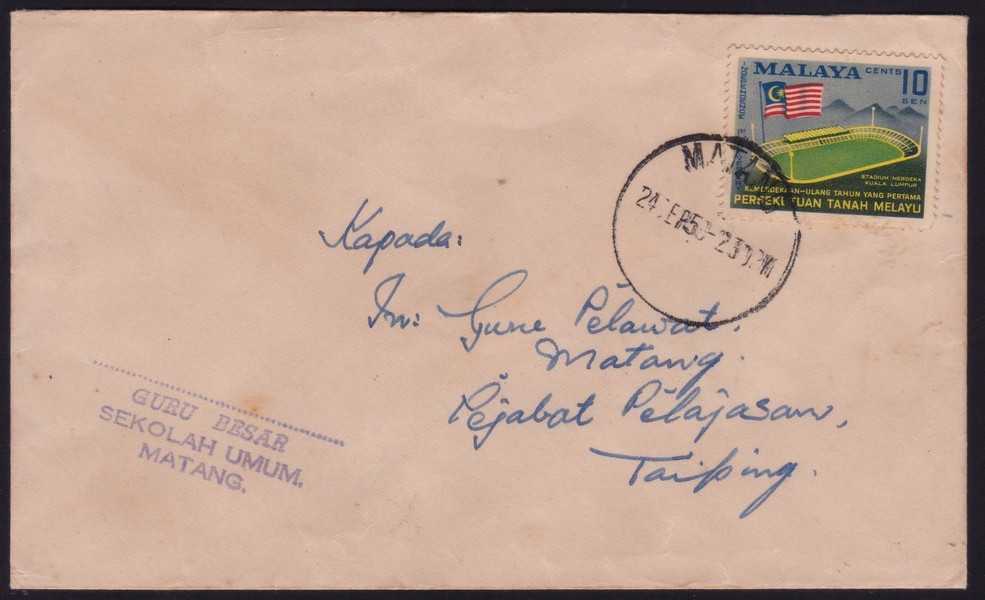 MALAYA CENTS 10
SEN
STADIUM MERDEKA
KUALA LUMPUR
KEMERDEKAAN-ULANG TAHUN YANG PERTAMA
PERSEKUTUAN TANAH MELAYU
MATANG
24 SEP 58 - 2 30 PM
Kapada:
Guru Pelawat,
Matang.
Pejabat Pelajaran,
Taiping.
GURU BESAR
SEKOLAH UMUM.
MATANG.